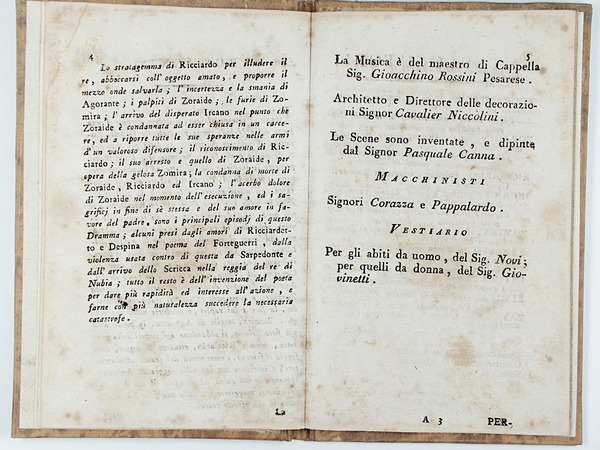 4
Lo stratagemma di Ricciardo per illudere il
re, abboccarsi coll' oggetto amato, e proporre il
mezzo onde salvarla; l' incertezza e la smania di
Agorante; i palpiti di Zoraide, le furie di Zo-
mira; l' arrivo del disperato Ircano nel punto che
Zoraide è condannata ad esser chiusa in un carce-
re, ed a riporre tutte le sue speranze nelle armi
d'un valoroso difensore; il riconoscimento di Ric-
ciardo; il suo arresto e quello di Zoraide, per
opera della gelosa Zomira; la condanna di morte di
Zoraide, Ricciardo ed Ircano; l' acerbo dolore
di Zoraide nel momento dell'esecuzione, ed i sa-
grificj in fine di sè stessa e del suo amore in fa-
vore del padre, sono i principali episodj di questo
Dramma; alcuni presi dagli amori di Ricciardet-
to e Despina nel poema del Forteguerri, dalla
violenza usata contro di questa da Sarpedonte e
dall' arrivo dello Scricca nella reggia del re di
Nubia; tutto il resto è dell'invenzione del poeta
per dare più rapidità ed interesse all'azione, e
farne con più naturalezza succedere la necessaria
catastrofe.
La
5
La Musica è del maestro di Cappella
Sig. Gioacchino Rossini Pesarese.
Architetto e Direttore delle decorazio-
ni Signor Cavalier Niccolini.
Le Scene sono inventate, e dipinte
dal Signor Pasquale Canna.
MACCHINISTI
Signori Corazza e Pappalardo.
VESTIARIO
Per gli abiti da uomo, del Sig. Novi;
per quelli da donna, del Sig. Gio-
vinetti.
A 3 PER-